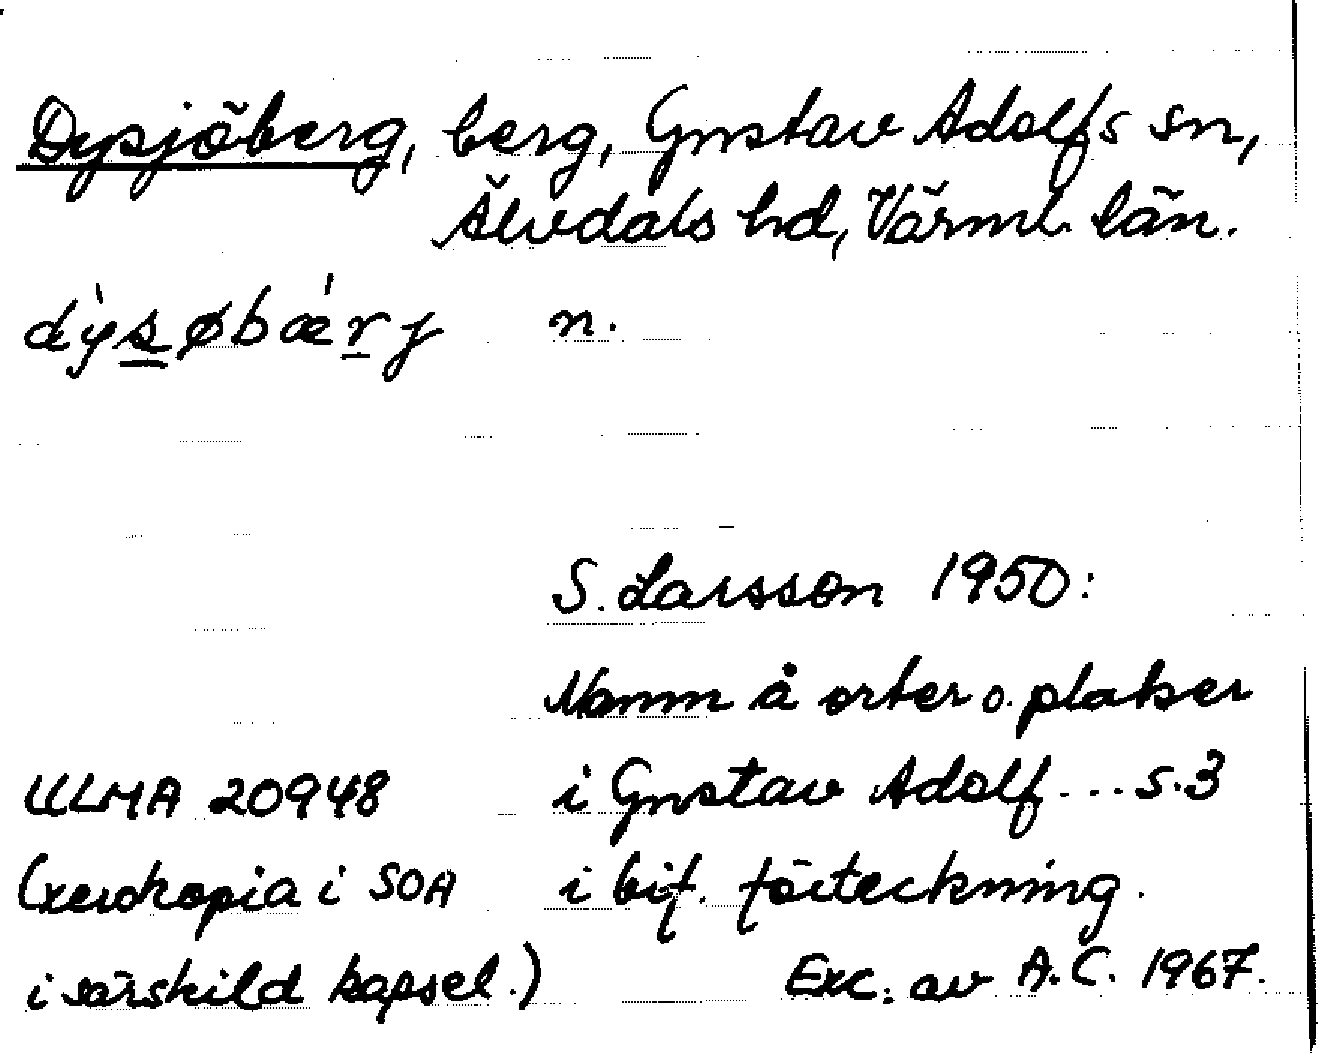 Dysjöberg, berg, Gustav Adolfs sn,
Älvdals hd, Värml. län.
dỳsøbǽrj n.
S. Larsson 1950:
Namn å orter o. platser
ULMA 20948 i Gustav Adolf... s.3
(xerokopia i SOA i bif. förteckning.
i särskild kapsel.) Exc. av A.C. 1967.